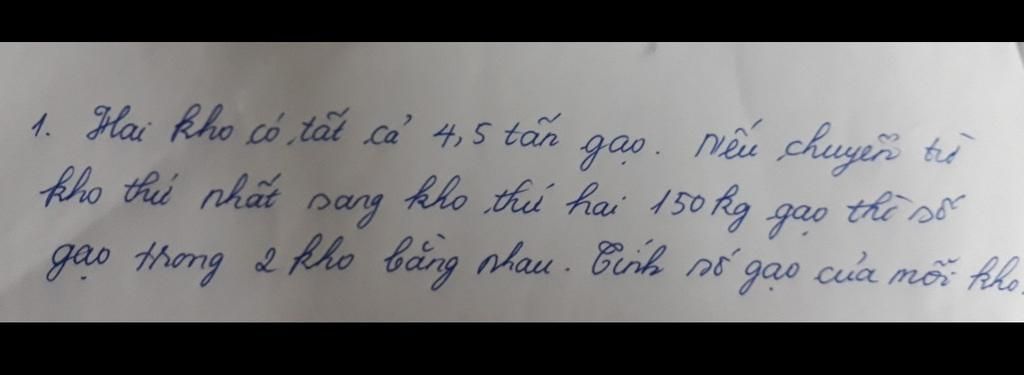 1. Hai kho có tất cả 4,5 tấn gạo. Nếu chuyển từ
kho thứ nhất sang kho thứ hai 150kg gạo thì số
gạo trong 2 kho bằng nhau. Tính số gạo của mỗi kho.